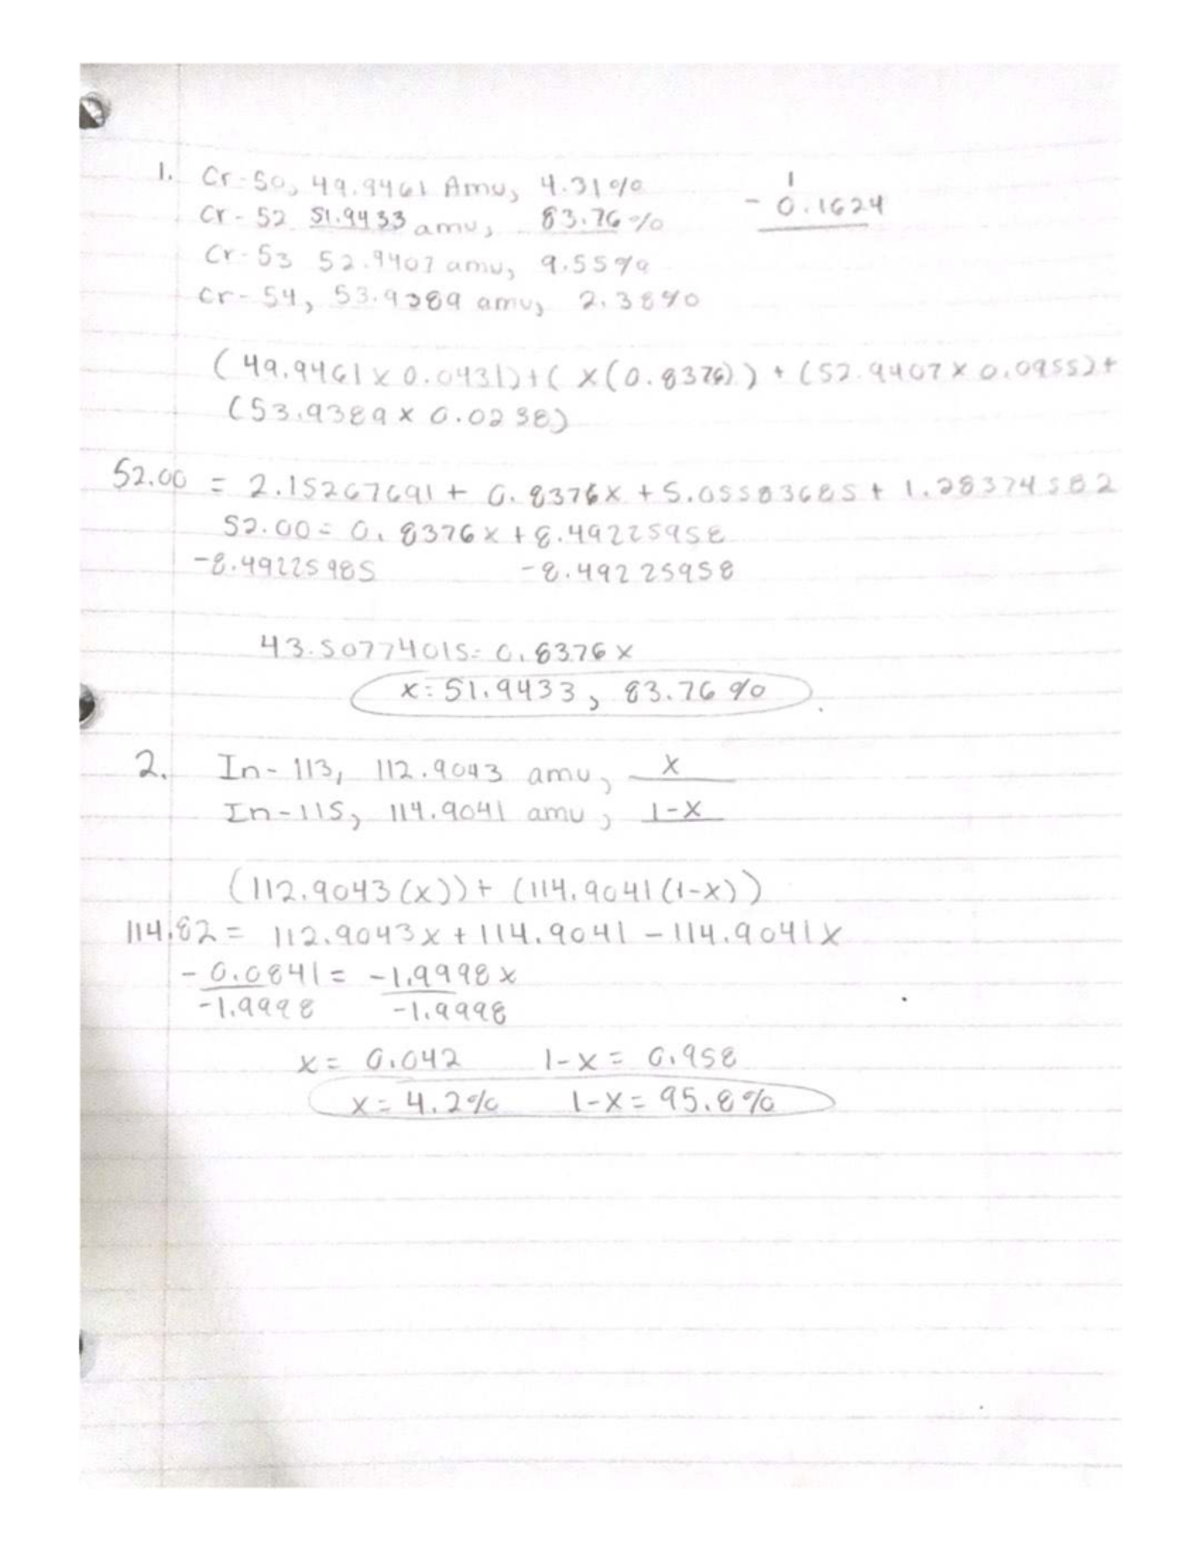 1. Cr-50, 49.9461 Amu, 4.31%
1
Cr-52 51.9433 amu, 83.76%
- 0.1624
Cr-53 52.9407 amu, 9.55%
Cr-54, 53.9389 amu, 2.38%
(49.9461 x 0.0431)+( x(0.8376)) + (52.9407 x 0.0955)+
(53.9389 x 0.0238)
52.00 = 2.15267691 + 0.8376x + 5.05583685 + 1.28374582
52.00 = 0.8376x + 8.49225958
-8.49225985 -8.49225958
43.50774015 = 0.8376x
x = 51.9433, 83.76%
2. In-113, 112.9043 amu, x
In-115, 114.9041 amu, 1-x
(112.9043(x)) + (114.9041(1-x))
114.82 = 112.9043x + 114.9041 - 114.9041x
-0.0841 = -1.9998x
-1.9998 -1.9998
x = 0.042 1-x = 0.958
x = 4.2% 1-x = 95.8%